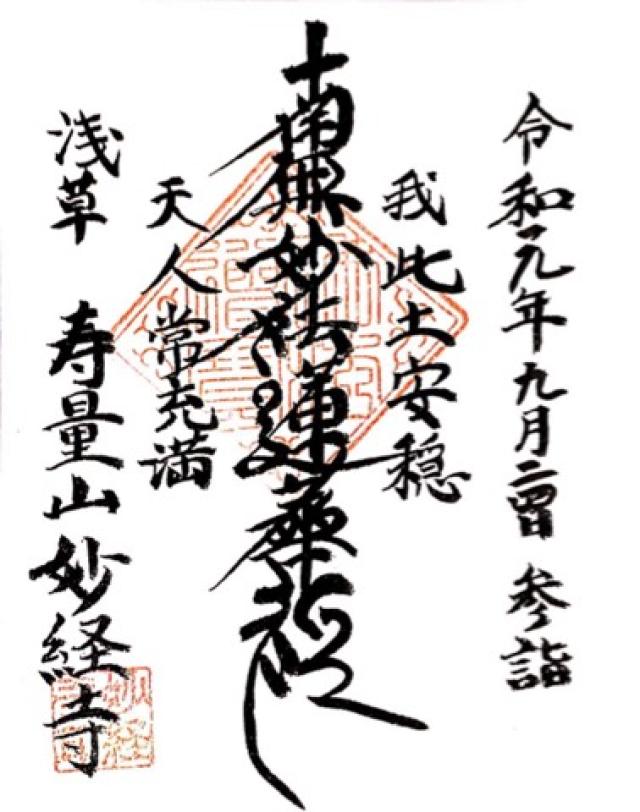 令和元年九月二四日 参詣
我此土安穏
南無妙法蓮華経
天人常充満
浅草 寿量山妙経寺